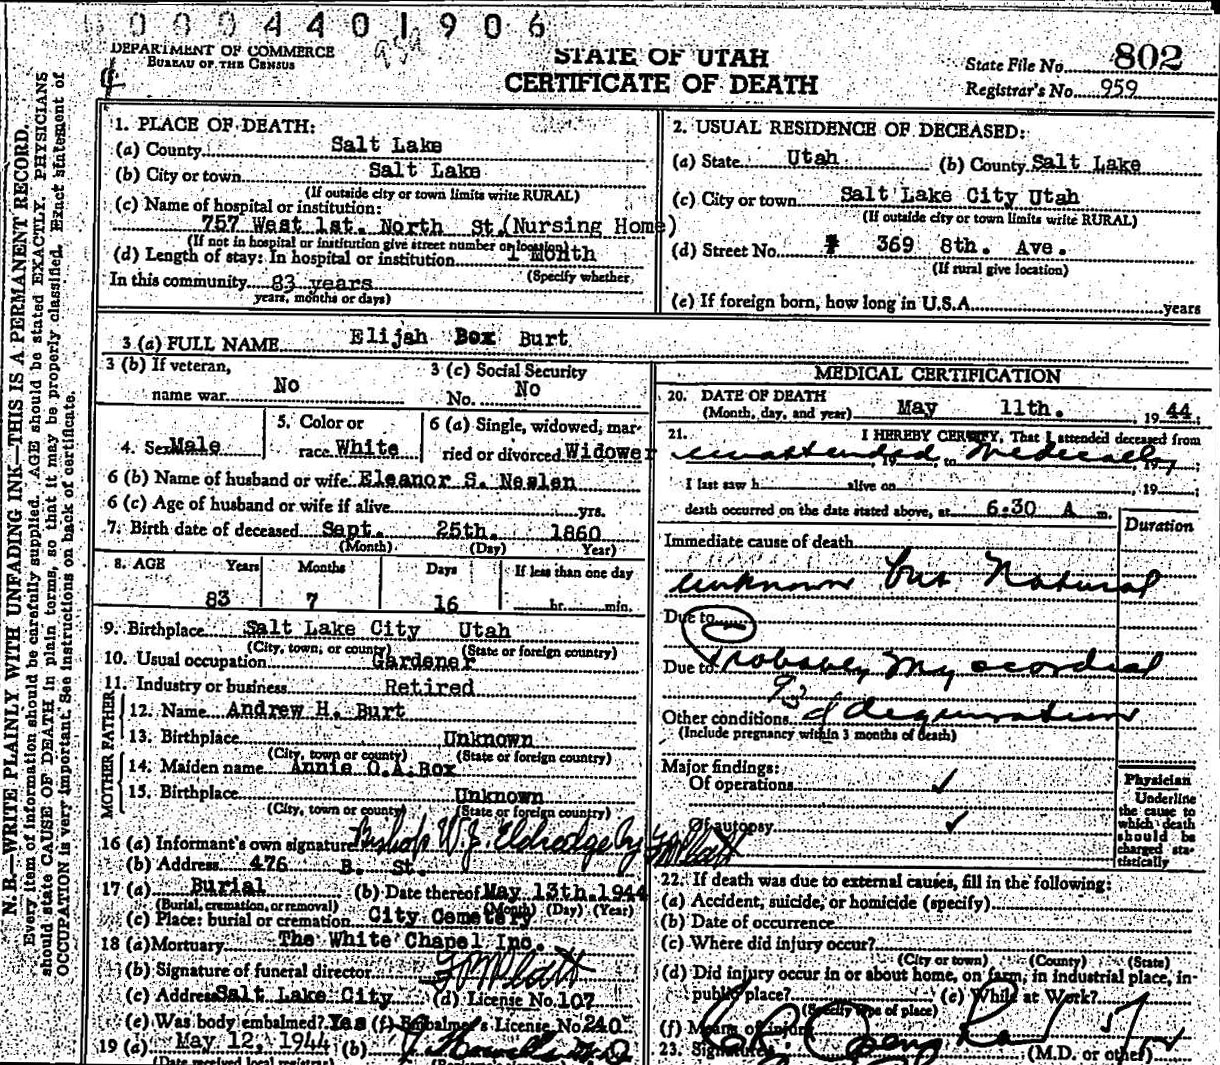 0004401906
DEPARTMENT OF COMMERCE
BUREAU OF THE CENSUS
STATE OF UTAH
CERTIFICATE OF DEATH
State File No. 802
Registrar's No. 959
N. B.—WRITE PLAINLY WITH UNFADING INK—THIS IS A PERMANENT RECORD.
Every item of information should be carefully supplied. AGE should be stated EXACTLY. PHYSICIANS
should state CAUSE OF DEATH in plain terms, so that it may be properly classified. Exact statement of
OCCUPATION is very important. See instructions on back of certificate.
1. PLACE OF DEATH:
(a) County Salt Lake
(b) City or town Salt Lake
(If outside city or town limits write RURAL)
(c) Name of hospital or institution:
757 West 1st. North St.(Nursing Home)
(If not in hospital or institution give street number or location)
(d) Length of stay: In hospital or institution 1 Month
(Specify whether
In this community 83 years
years, months or days)
2. USUAL RESIDENCE OF DECEASED:
(a) State Utah (b) County Salt Lake
(c) City or town Salt Lake City Utah
(If outside city or town limits write RURAL)
(d) Street No. 369 8th. Ave.
(If rural give location)
(e) If foreign born, how long in U.S.A. years
3 (a) FULL NAME Elijah Box Burt
3 (b) If veteran,
name war No
3 (c) Social Security
No. No
4. Sex Male
5. Color or
race White
6 (a) Single, widowed, mar-
ried or divorced Widower
6 (b) Name of husband or wife Eleanor S. Neslen
6 (c) Age of husband or wife if alive yrs.
7. Birth date of deceased Sept. 25th. 1860
(Month) (Day) Year)
8. AGE Years Months Days If less than one day
83 7 16 hr. min.
9. Birthplace Salt Lake City Utah
(City, town, or county) (State or foreign country)
10. Usual occupation Gardener
11. Industry or business Retired
FATHER
12. Name Andrew H. Burt
13. Birthplace Unknown
(City, town or county) (State or foreign country)
MOTHER
14. Maiden name Annie O.A.Box
15. Birthplace Unknown
(City, town or county) (State or foreign country)
16 (a) Informant's own signature Bishop W.J. Eldredge by
(b) Address 476 B. St.
17 (a) Burial (b) Date thereof May 13th.1944
(Burial, cremation, or removal) (Month) (Day) (Year)
(c) Place: burial or cremation City Cemetery
18 (a) Mortuary The White Chapel Inc.
(b) Signature of funeral director
(c) Address Salt Lake City (d) License No. 107
(e) Was body embalmed? Yes (f) Embalmer's License No. 240
19 (a) May 12, 1944 (b)
(Date received local registrar)
MEDICAL CERTIFICATION
20. DATE OF DEATH
(Month, day, and year) May 11th. 19 44
21. I HEREBY CERTIFY, That I attended deceased from
unattended, 19 to Medically, 19 ;
I last saw h alive on , 19 ;
death occurred on the date stated above, at 6:30 A m.
Duration
Immediate cause of death
unknown but Natural
Due to
Due to Probably Myocardial
93d degeneration
Other conditions
(Include pregnancy within 3 months of death)
Major findings:
Of operations ✓
Of autopsy ✓
Physician
Underline
the cause to
which death
should be
charged sta-
tistically
22. If death was due to external causes, fill in the following:
(a) Accident, suicide, or homicide (specify)
(b) Date of occurrence
(c) Where did injury occur?
(City or town) (County) (State)
(d) Did injury occur in or about home, on farm, in industrial place, in-
public place? (e) While at Work?
(Specify type of place)
(f) Means of injury
23. Signature (M.D. or other)